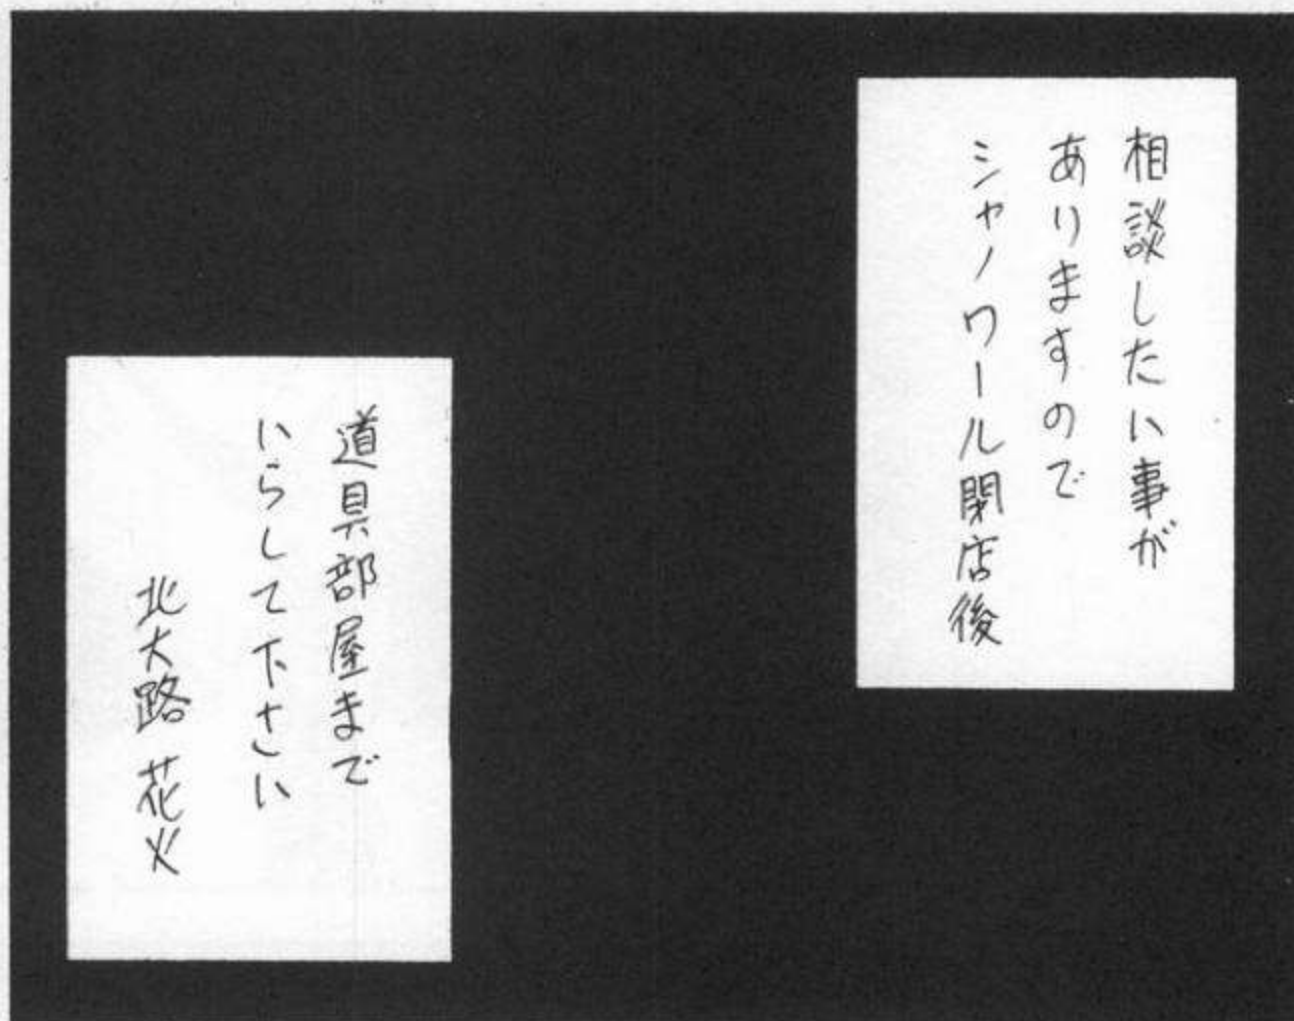 相談したい事が
ありますので
シャノワール閉店後
道具部屋まで
いらして下さい
北大路 花火